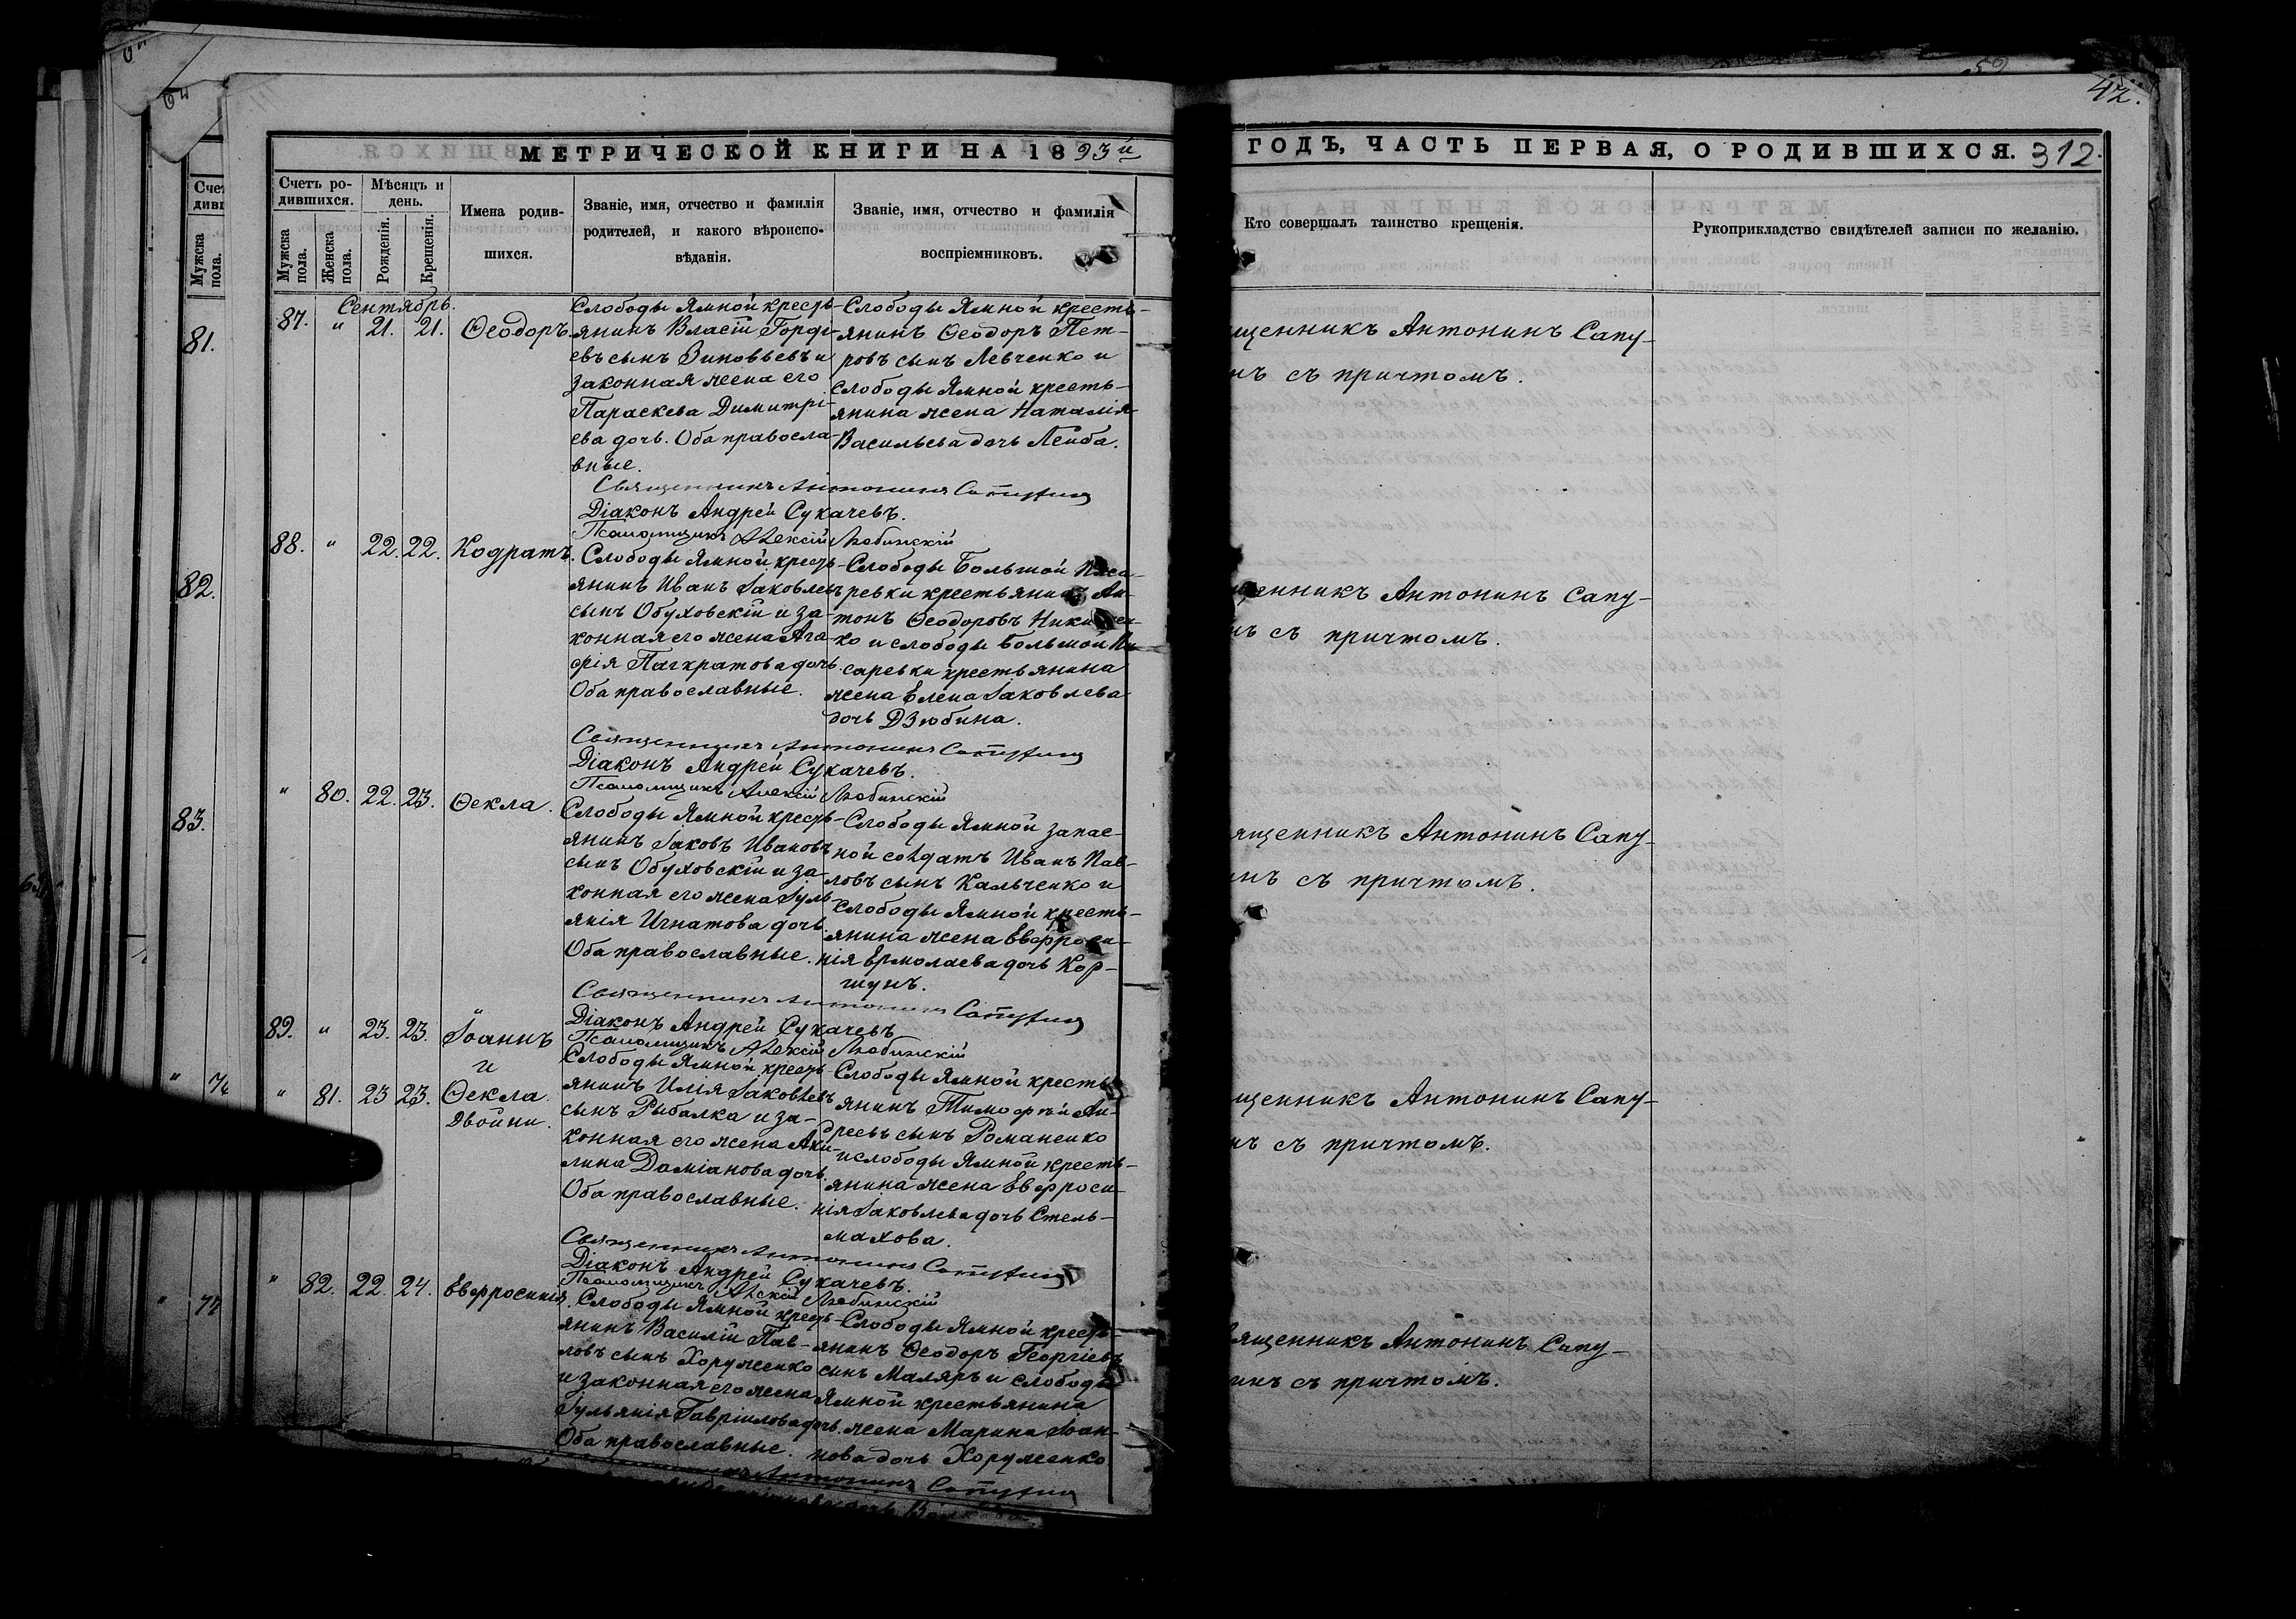 42.
МЕТРИЧЕСКОЙ КНИГИ НА 1893й
ГОДЪ, ЧАСТЬ ПЕРВАЯ, О РОДИВШИХСЯ. 312.
Счетъ ро-
дившихся.
Мужска
пола.
Женска
пола.
Мѣсяцъ и
день.
Рожденія.
Крещенія.
Имена родив-
шихся.
Званіе, имя, отчество и фамилія
родителей, и какого вѣроиспо-
вѣданія.
Званіе, имя, отчество и фамилія
воспріемниковъ.
Кто совершалъ таинство крещенія.
Рукоприкладство свидѣтелей записи по желанію.
Сентябрь.
87. " 21. 21. Ѳеодоръ.
Слободы Ямной кресть-
янинъ Власій Горди-
евъ сынъ Зиновьевъ и
законная жена его
Параскева Димитрі-
ева дочь. Оба правосла-
вные.
Слободы Ямной кресть-
янинъ Ѳеодоръ Пет-
ровъ сынъ Левченко и
слободы Ямной кресть-
янина жена Наталія
Васильева дочь Лейба.
щенникъ Антонинъ Сапу-
нъ съ причтомъ.
Священникъ Антонинъ Сапухинъ
Діаконъ Андрей Сукачевъ.
Псаломщикъ Алексій Любинскій
88. " 22. 22. Кодратъ.
Слободы Ямной кресть-
янинъ Иванъ Іаковлевъ
сынъ Обуховскій и за-
конная его жена Ага-
фія Панкратова дочь.
Оба православные.
Слободы Большой Писа-
ревки крестьянинъ Ан-
тонъ Ѳеодоровъ
ко и слободы Большой Пи-
саревки крестьянина
жена Елена Іаковлева
дочь Дзюбина.
щенникъ Антонинъ Сапу-
нъ съ причтомъ.
Священникъ Антонинъ Сапухинъ
Діаконъ Андрей Сукачевъ.
Псаломщикъ Алексій Любинскій
" 80. 22. 23. Ѳекла.
Слободы Ямной кресть-
янинъ Іаковъ Ивановъ
сынъ Обуховскій и за-
конная его жена Іуль-
янія Игнатова дочь
Оба православные.
Слободы Ямной запас-
ной солдатъ Иванъ Пав-
ловъ сынъ Кальченко и
слободы Ямной кресть-
янина жена Евфроси-
нія Ермолаева дочь Кор-
шунъ.
ященникъ Антонинъ Сапу-
инъ съ причтомъ.
Священникъ Антонинъ Сапухинъ
Діаконъ Андрей Сукачевъ
Псаломщикъ Алексій Любинскій
89. " 23. 23. Іоаннъ
и
" 81. 23 23. Ѳекла.
Двойни.
Слободы Ямной кресть-
янинъ Илія Іаковлевъ
сынъ Рыбалка и за-
конная его жена Аки-
лина Даміанова дочь.
Оба православные.
Слободы Ямной кресть-
янинъ Тимофѣй Ан-
дреевъ сынъ Романенко
и слободы Ямной кресть-
янина жена Евфроси-
нія Іаковлева дочь Стель-
махова.
щенникъ Антонинъ Сапу-
нъ съ причтомъ.
Священникъ Антонинъ Сапухинъ
Діаконъ Андрей Сукачевъ.
Псаломщикъ Алексій Любинскій
" 82. 22. 24. Евфросинія.
Слободы Ямной кресть-
янинъ Василій Пав-
ловъ сынъ Хоруженко
и законная его жена
Іульянія Гавріилова дочь.
Оба православные.
Слободы Ямной кресть-
янинъ Ѳеодоръ Георгіевъ
сынъ Маляръ и слободы
Ямной крестьянина
жена Марина Іоан-
нова дочь Хоруженко
ященникъ Антонинъ Сапу-
инъ съ причтомъ.
Антонинъ Сапухинъ
81.
82.
83.
" 76
" 77